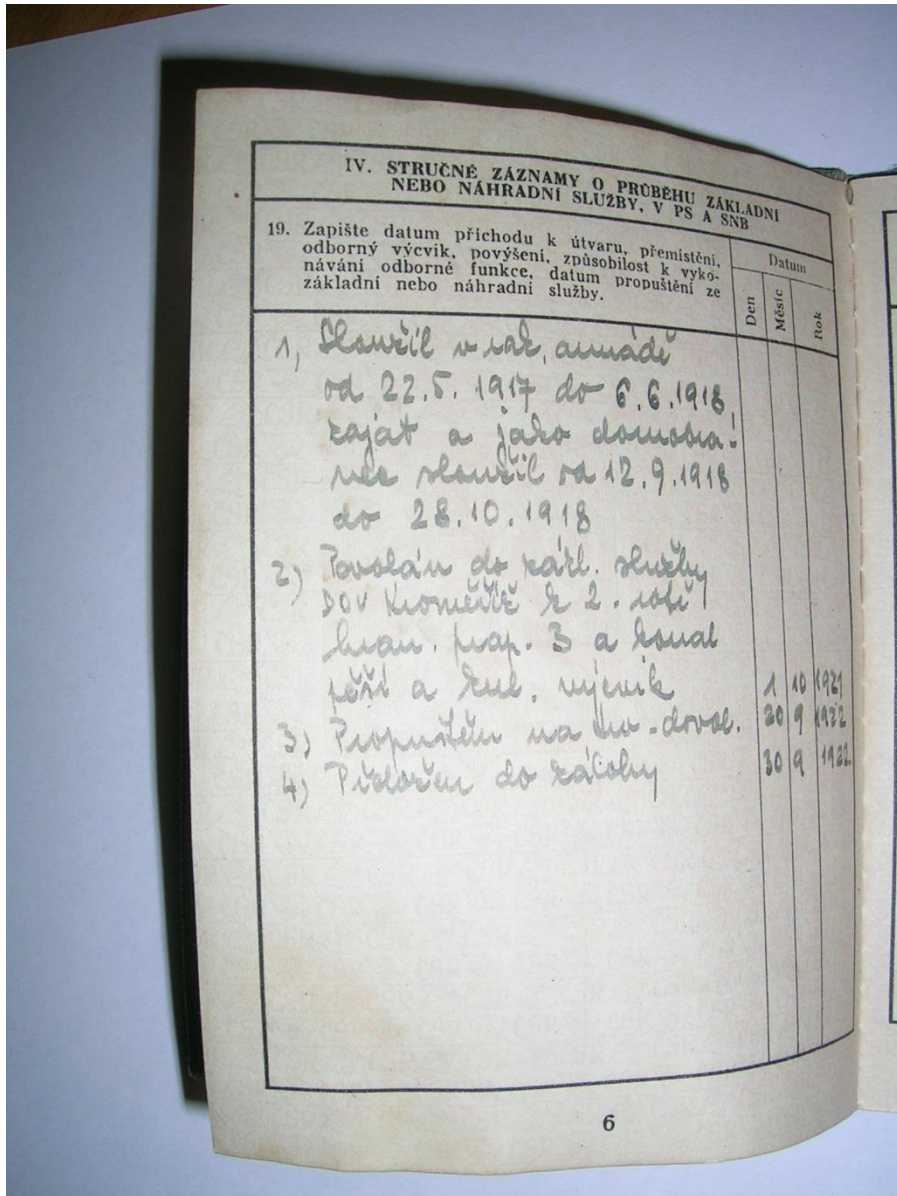 IV. STRUČNÉ ZÁZNAMY O PRŮBĚHU ZÁKLADNÍ
NEBO NÁHRADNÍ SLUŽBY, V PS A SNB
19. Zapište datum příchodu k útvaru, přemistění,
odborný výcvik, povýšení, způsobilost k vyko-
návání odborné funkce, datum propuštění ze
základní nebo náhradní služby.
Datum
Den
Měsíc
Rok
1, Sloužil v rak. armádě
od 22.5. 1917 do 6.6.1918,
zajat a jako domobra-
nec sloužil od 12.9.1918
do 28.10.1918
2) Povolán do zákl. služby
DOV Kroměříž k 2. rotě
hran. prap. 3 a konal
pěší a kul. výcvik 1 10 1921
3) Propuštěn na dovol. 9 1922
4) Přeložen do zálohy 30 9 1922
6